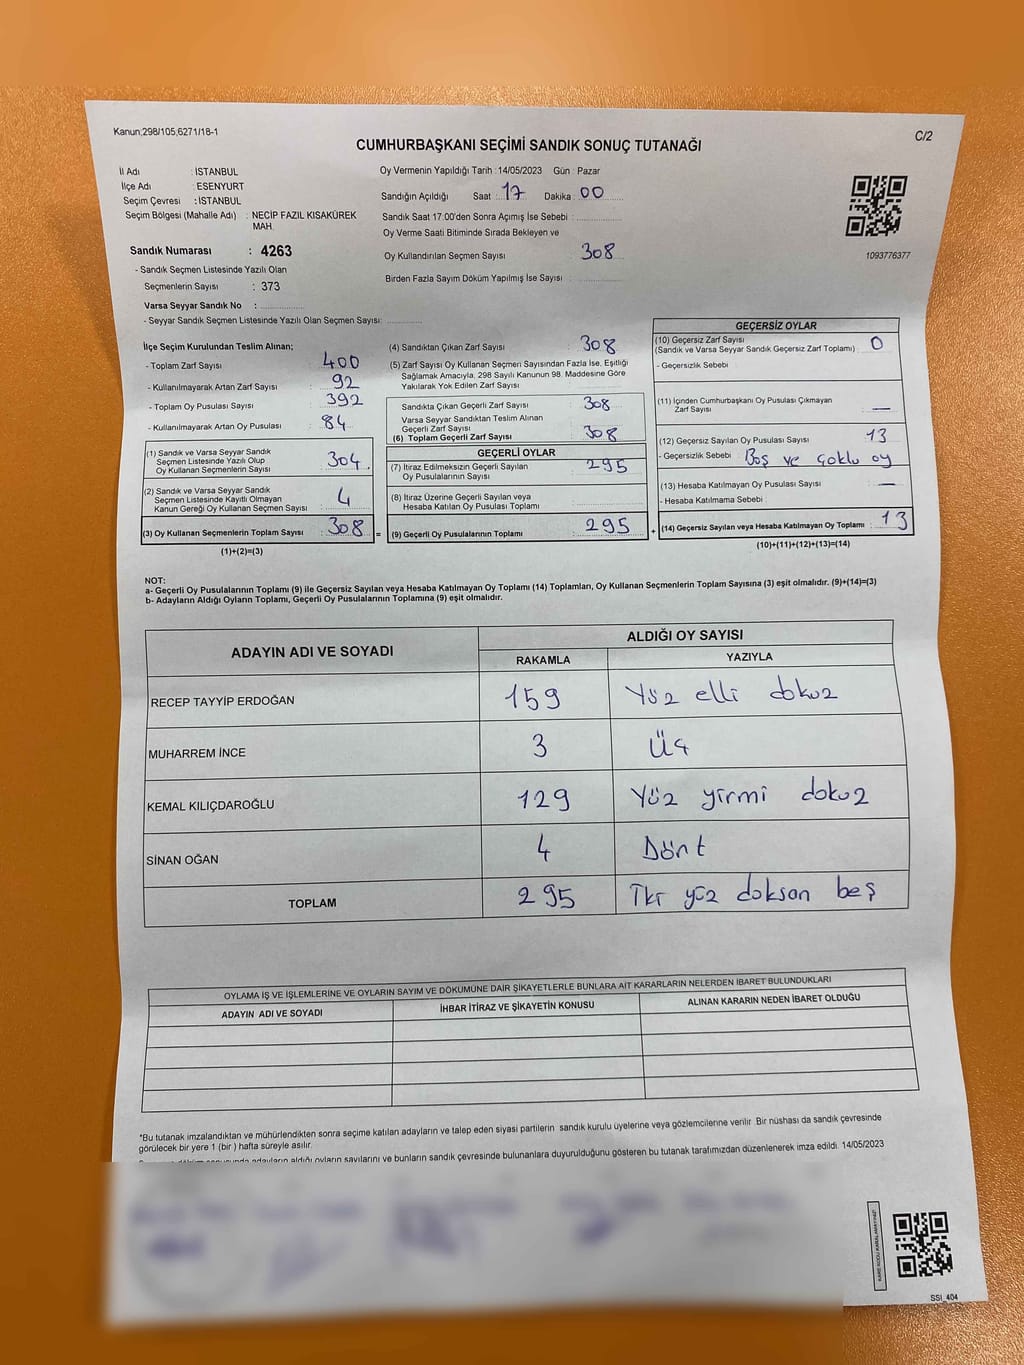 Kanun;298/105,6271/18-1
C/2
CUMHURBAŞKANI SEÇİMİ SANDIK SONUÇ TUTANAĞI
İl Adı : İSTANBUL
İlçe Adı : ESENYURT
Seçim Çevresi : İSTANBUL
Seçim Bölgesi (Mahalle Adı) : NECİP FAZIL KISAKÜREK
MAH.
Sandık Numarası : 4263
- Sandık Seçmen Listesinde Yazılı Olan
Seçmenlerin Sayısı : 373
Varsa Seyyar Sandık No :
- Seyyar Sandık Seçmen Listesinde Yazılı Olan Seçmen Sayısı:
Oy Vermenin Yapıldığı Tarih : 14/05/2023 Gün : Pazar
Sandığın Açıldığı Saat : 17 Dakika : 00
Sandık Saat 17:00'den Sonra Açımış İse Sebebi :
Oy Verme Saati Bitiminde Sırada Bekleyen ve
Oy Kullandırılan Seçmen Sayısı : 308
Birden Fazla Sayım Döküm Yapılmış İse Sayısı :
1093776377
İlçe Seçim Kurulundan Teslim Alınan;
- Toplam Zarf Sayısı : 400
- Kullanılmayarak Artan Zarf Sayısı : 92
- Toplam Oy Pusulası Sayısı : 392
- Kullanılmayarak Artan Oy Pusulası : 84
(1) Sandık ve Varsa Seyyar Sandık
Seçmen Listesinde Yazılı Olup
Oy Kullanan Seçmenlerin Sayısı : 304
(2) Sandık ve Varsa Seyyar Sandık
Seçmen Listesinde Kayıtlı Olmayan
Kanun Gereği Oy Kullanan Seçmen Sayısı : 4
(3) Oy Kullanan Seçmenlerin Toplam Sayısı : 308 =
(1)+(2)=(3)
(4) Sandıktan Çıkan Zarf Sayısı : 308
(5) Zarf Sayısı Oy Kullanan Seçmen Sayısından Fazla İse, Eşitliği
Sağlamak Amacıyla, 298 Sayılı Kanunun 98. Maddesine Göre
Yakılarak Yok Edilen Zarf Sayısı :
Sandıkta Çıkan Geçerli Zarf Sayısı : 308
Varsa Seyyar Sandıktan Teslim Alınan
Geçerli Zarf Sayısı
(6) Toplam Geçerli Zarf Sayısı : 308
GEÇERLİ OYLAR
(7) İtiraz Edilmeksizin Geçerli Sayılan
Oy Pusulalarının Sayısı : 295
(8) İtiraz Üzerine Geçerli Sayılan veya
Hesaba Katılan Oy Pusulası Toplamı :
(9) Geçerli Oy Pusulalarının Toplamı : 295 +
GEÇERSİZ OYLAR
(10) Geçersiz Zarf Sayısı
(Sandık ve Varsa Seyyar Sandık Geçersiz Zarf Toplamı) : 0
- Geçersizlik Sebebi :
(11) İçinden Cumhurbaşkanı Oy Pusulası Çıkmayan
Zarf Sayısı : —
(12) Geçersiz Sayılan Oy Pusulası Sayısı : 13
- Geçersizlik Sebebi : Boş ve çoklu oy
(13) Hesaba Katılmayan Oy Pusulası Sayısı : —
- Hesaba Katılmama Sebebi :
(14) Geçersiz Sayılan veya Hesaba Katılmayan Oy Toplamı : 13
(10)+(11)+(12)+(13)=(14)
NOT:
a- Geçerli Oy Pusulalarının Toplamı (9) ile Geçersiz Sayılan veya Hesaba Katılmayan Oy Toplamı (14) Toplamları, Oy Kullanan Seçmenlerin Toplam Sayısına (3) eşit olmalıdır. (9)+(14)=(3)
b- Adayların Aldığı Oyların Toplamı, Geçerli Oy Pusulalarının Toplamına (9) eşit olmalıdır.
ADAYIN ADI VE SOYADI ALDIĞI OY SAYISI
RAKAMLA YAZIYLA
RECEP TAYYİP ERDOĞAN 159 Yüz elli dokuz
MUHARREM İNCE 3 Üç
KEMAL KILIÇDAROĞLU 129 Yüz yirmi dokuz
SİNAN OĞAN 4 Dört
TOPLAM 295 İki yüz doksan beş
OYLAMA İŞ VE İŞLEMLERİNE VE OYLARIN SAYIM VE DÖKÜMÜNE DAİR ŞİKAYETLERLE BUNLARA AİT KARARLARIN NELERDEN İBARET BULUNDUKLARI
ADAYIN ADI VE SOYADI İHBAR İTİRAZ VE ŞİKAYETİN KONUSU ALINAN KARARIN NEDEN İBARET OLDUĞU
*Bu tutanak imzalandıktan ve mühürlendikten sonra seçime katılan adayların ve talep eden siyasi partilerin sandık kurulu üyelerine veya gözlemcilerine verilir. Bir nüshası da sandık çevresinde
görülecek bir yere 1 (bir ) hafta süreyle asılır.
adayların aldığı oyların sayılarını ve bunların sandık çevresinde bulunanlara duyurulduğunu gösteren bu tutanak tarafımızdan düzenlenerek imza edildi. 14/05/2023
SSI_404